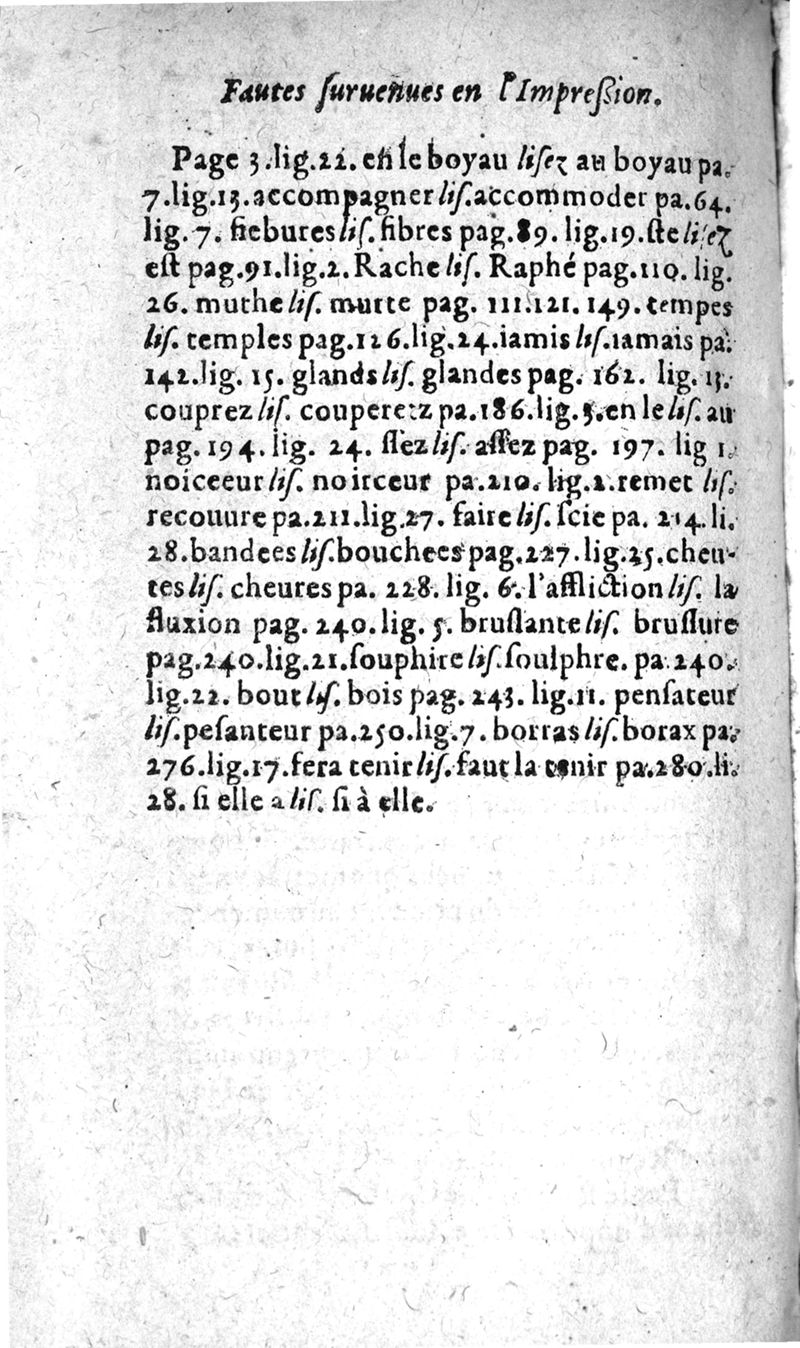 Fautes ſuruenues en l'Impreſsion.
Page 3.lig.22. en le boyau liſez au boyau pa.
7.lig.13.accompagner liſ.accommoder pa.64.
lig.7. fiebures liſ. fibres pag.89. lig.19.ſte liſez
eſt pag.91.lig.2. Rache liſ. Raphé pag.110. lig.
26. muthe liſ. mutte pag. 111.121. 149.tempes
liſ. temples pag.126.lig.24.iamis liſ.iamais pa.
142.lig. 15. glands liſ. glandes pag. 162. lig. 13.
couprez liſ. couperetz pa.186.lig.5.en le liſ. au
pag. 194.lig. 24. ſlez liſ. aſſez pag. 197. lig 1.
noiceeur liſ. noirceur pa.210. lig.2.remet liſ.
recouure pa.211.lig.27. faire liſ. ſcie pa. 214.li.
28.bandees liſ.bouchees pag.227.lig.25.cheu-
tes liſ. cheures pa. 228. lig. 6. l'affliction liſ. la
fluxion pag. 240.lig. 5. bruſlante liſ. bruſlure
pag.240.lig.21.ſouphire liſ.ſoulphre. pa.240.
lig.22. bout liſ. bois pag. 243. lig.11. penſateur
liſ.peſanteur pa.250.lig.7. borras liſ.borax pa.
276.lig.17.fera tenir liſ.faut la tenir pa.280.li.
28. ſi elle a liſ. ſi à elle.